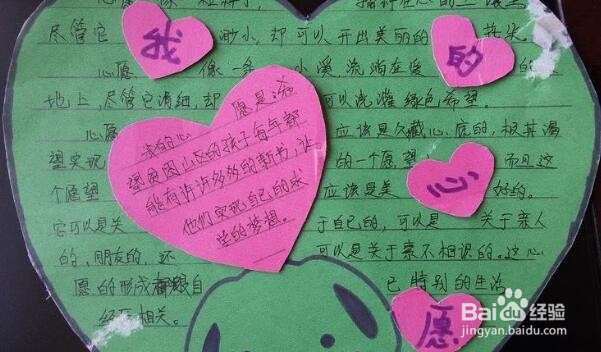 我 的 心 愿
尽管它 渺小,却可以开出美丽的
心愿 像一条 小溪流淌在爱 的
地上,尽管它涓细,却 可以浇灌绿色希望。
心愿 应该是久藏心底的,极其渴
望实现 的一个愿望 而且这
个愿望 应该是美
它可以是关 于自己的,可以是 关于亲人
的、朋友的,还 可以是关于素不相识的。这心
愿的形成都跟自 己特别的生活
经历相关。
我的心 愿是:希
望贫困山区的孩子每年都
能有许许多多的新书,让
他们实现自己的求
学的梦想。
Baidu 百度 经验
jingyan.baidu.com